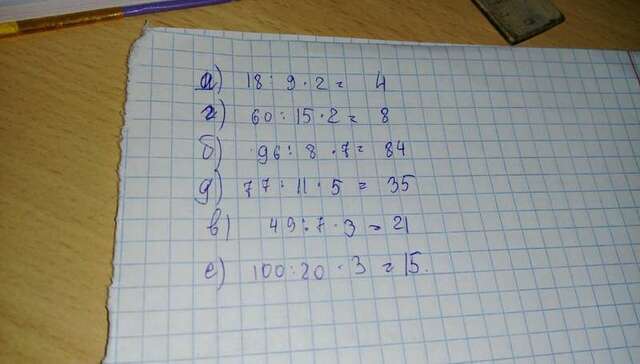 а) 18 : 9 · 2 = 4
г) 60 : 15 · 2 = 8
б) 96 : 8 · 7 = 84
д) 77 : 11 · 5 = 35
в) 49 : 7 · 3 = 21
е) 100 : 20 · 3 = 15.